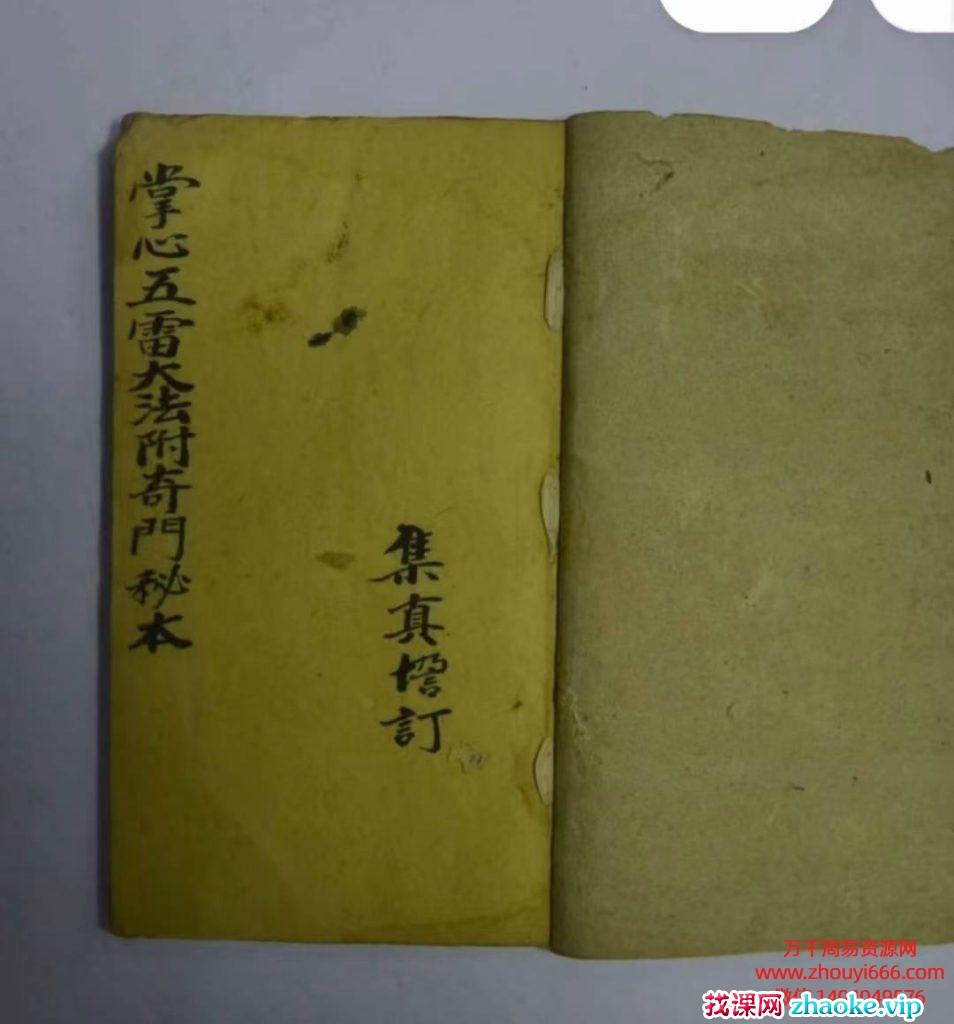 掌心五雷大法附奇門秘本
集真增訂
万千周易资源网
www.zhouyi666.com
找课网 zhaoke.vip